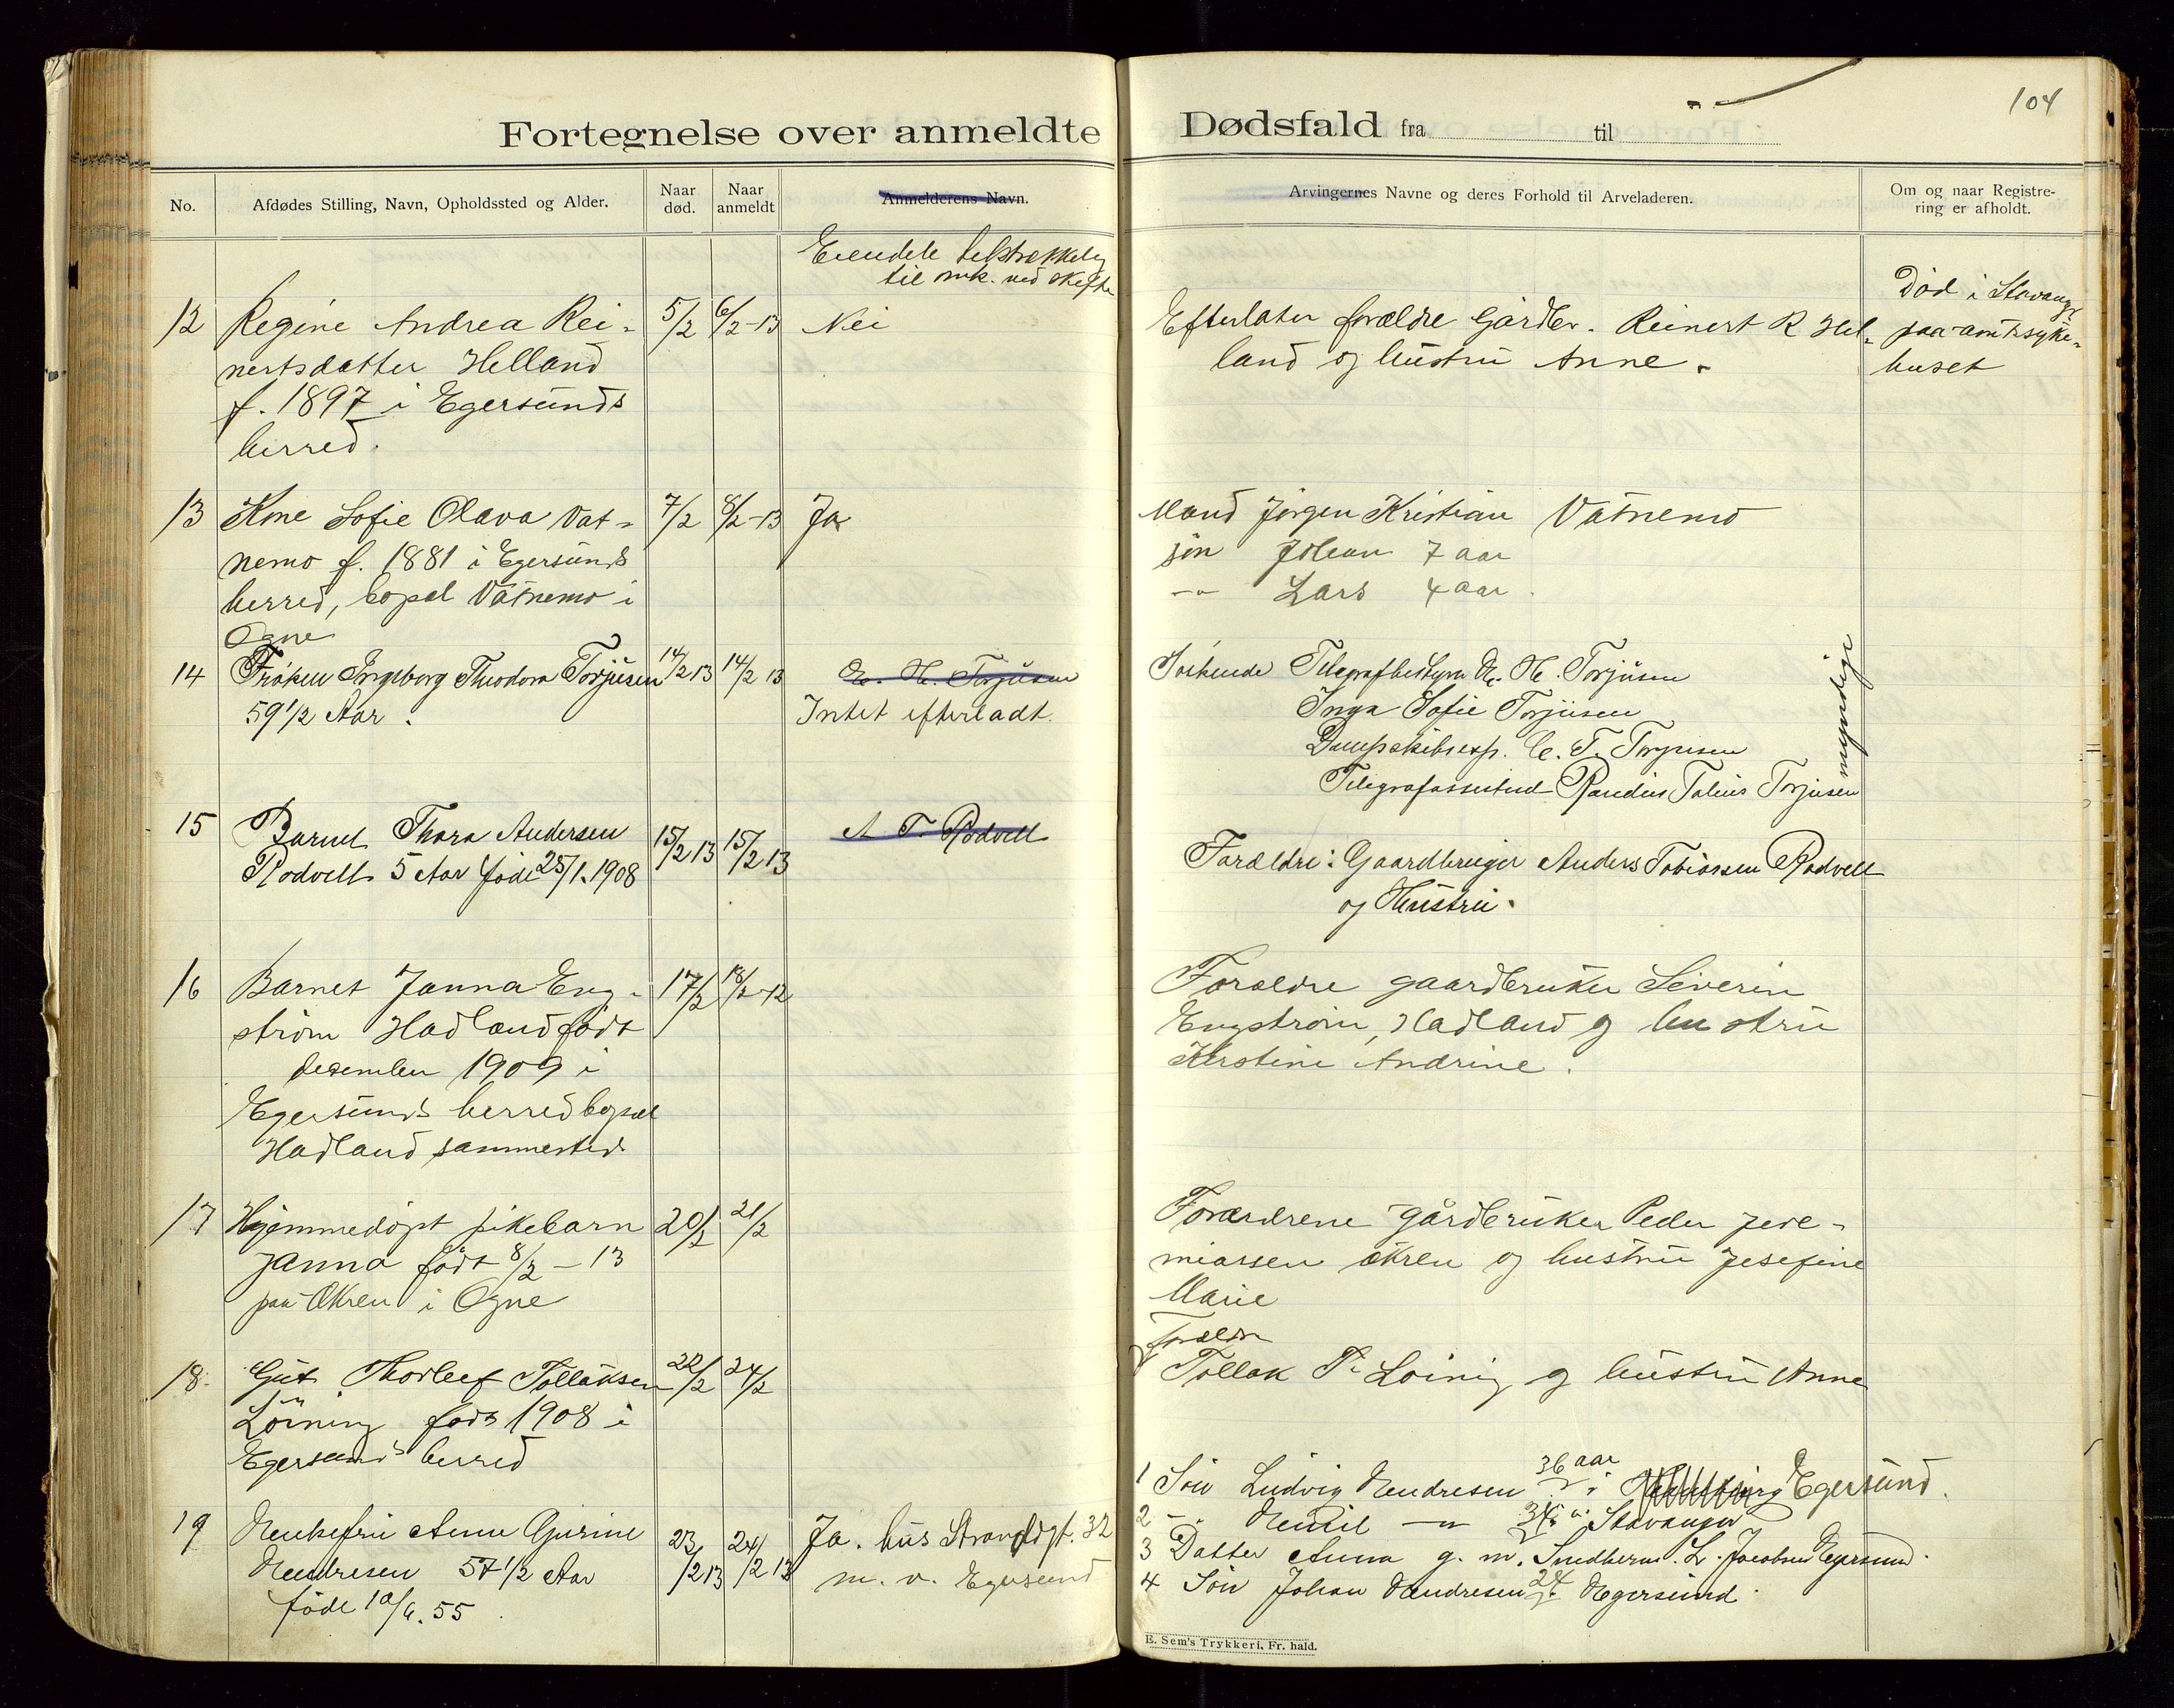 104
Fortegnelse over anmeldte Dødsfald fra til
No.
Afdødes Stilling, Navn, Opholdssted og Alder.
Naar død.
Naar anmeldt
Anmelderens Navn.
Arvingernes Navne og deres Forhold til Arveladeren.
Om og naar Registrering er afholdt.
Eiendele
til ved
12 Regine Andrea Rei- 5/2 6/2-13 Nei
nertsdatter Helland
f. 1897 i Egersunds
herred.
Efterlater forældre Gårdbr. Reinert R Hel-
land og hustru Anne.
Död i Stavanger
paa amtssyke-
huset
13 Kone Sofie Olava Vat- 7/2 8/2-13 Ja
nemo f. 1881 i Egersunds
herred, bopæl Vatnemo i
Ogne
Mand Jörgen Kristian Vatnemo
sön Johan 7 aar
-"- Lars 4 aar.
14 Fröken Ingeborg Theodora Torjusen 14/2 13 14/2 13 H. Torjusen
59 1/2 Aar. Intet efterladt.
Söskende Telegrafbestyrer H. Torjusen
Inga Sofie Torjusen
Dampskibsexp. C. T. Torjusen
Telegrafassistent Torjusen
myndige
15 Barnet Thora Andersen 15/2 13 15/2 13 A T. Rodvelt
Rodvelt 5 Aar föd 25/1.1908
Forældre: Gaardbruger Anders Tobiassen Rodvelt
og Hustru.
16 Barnet Janna Eng- 17/2 18/2-12
ström Hadland født
desember 1909 i
Egersunds herred bopæl
Hadland sammested
Forældre gaardbruker Severin
Engström, Hadland og hustru
Kirstine Andrine.
17 Hjemmedöpt pikebarn 20/2 21/2
Janna født 8/2-13
paa i Ogne
Forældrene gårdbruker Peder Jere-
miassen og hustru Josefine
Marie
18. Gut Thorleif Tollaksen 22/2 24/2
Löining födt 1908 i
Egersunds herred
Forældre
Tollak P. Löining og hustru Anne
19 Enkefru Anne Gurine 23/2 13 24/2 13 Ja. hus Strandgt. 32
57 1/2 Aar m. v. Egersund
född 10/6.55
1 Sön Ludvig 36 aar i Egersund.
2 -"- Emil -"- 34 " Stavanger
3 Datter Anna g. m. L. Jacobsen Egersund.
4 Sön Johan 24 Egersund.
E. Sem's Trykkeri, Fr. hald.